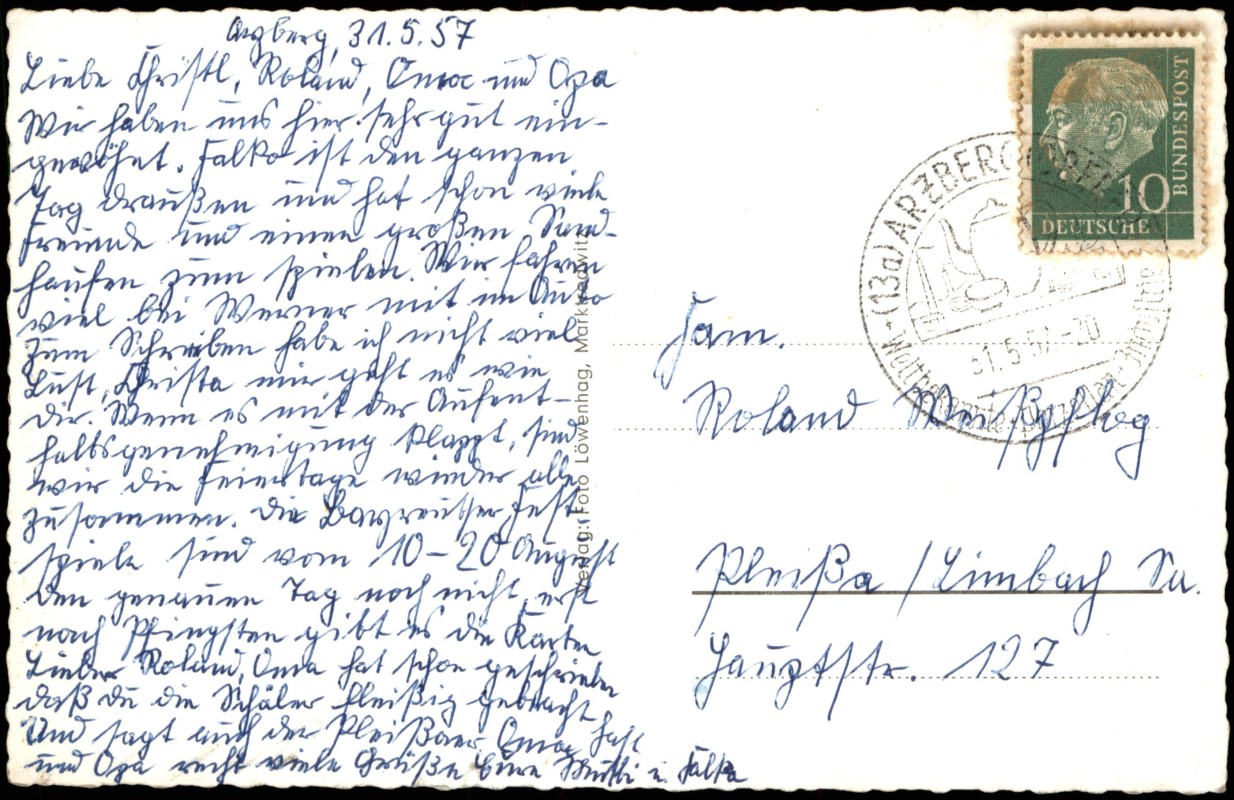 Arzberg, 31.5.57
Liebe Christl, Roland, Oma und Opa
Wir haben uns hier sehr gut ein-
gewöhnt. Falko ist den ganzen
Tag draußen und hat schon viele
Freunde und einen großen Sand-
haufen zum spielen. Wir fahren
viel bei Werner mit im Auto
Zum Schreiben habe ich nicht viel
Lust, Christa mir geht es wie
dir. Wenn es mit der Aufent-
haltsgenehmigung klappt, sind
wir die Feiertage wieder alle
zusammen. Die Bayreuther Fest-
spiele sind vom 10-20 August
den genauen Tag noch nicht, erst
nach Pfingsten gibt es die Karten
Lieber Roland, Oma hat schon geschrieben
daß du die Schäler fleißig gebracht hast
Und sagt auch der Pleißaer Oma
und Opa recht viele Grüße Eure Mutti u. Falko
Verlag: Foto Löwenhag, Marktredwitz
BUNDESPOST
10
DEUTSCHE
(13a) ARZBERG
31.5.57.-20
Weltbekannte Porzellan-Industrie
Fam.
Roland Weißpflog
Pleißa / Limbach Sa.
Hauptstr. 127